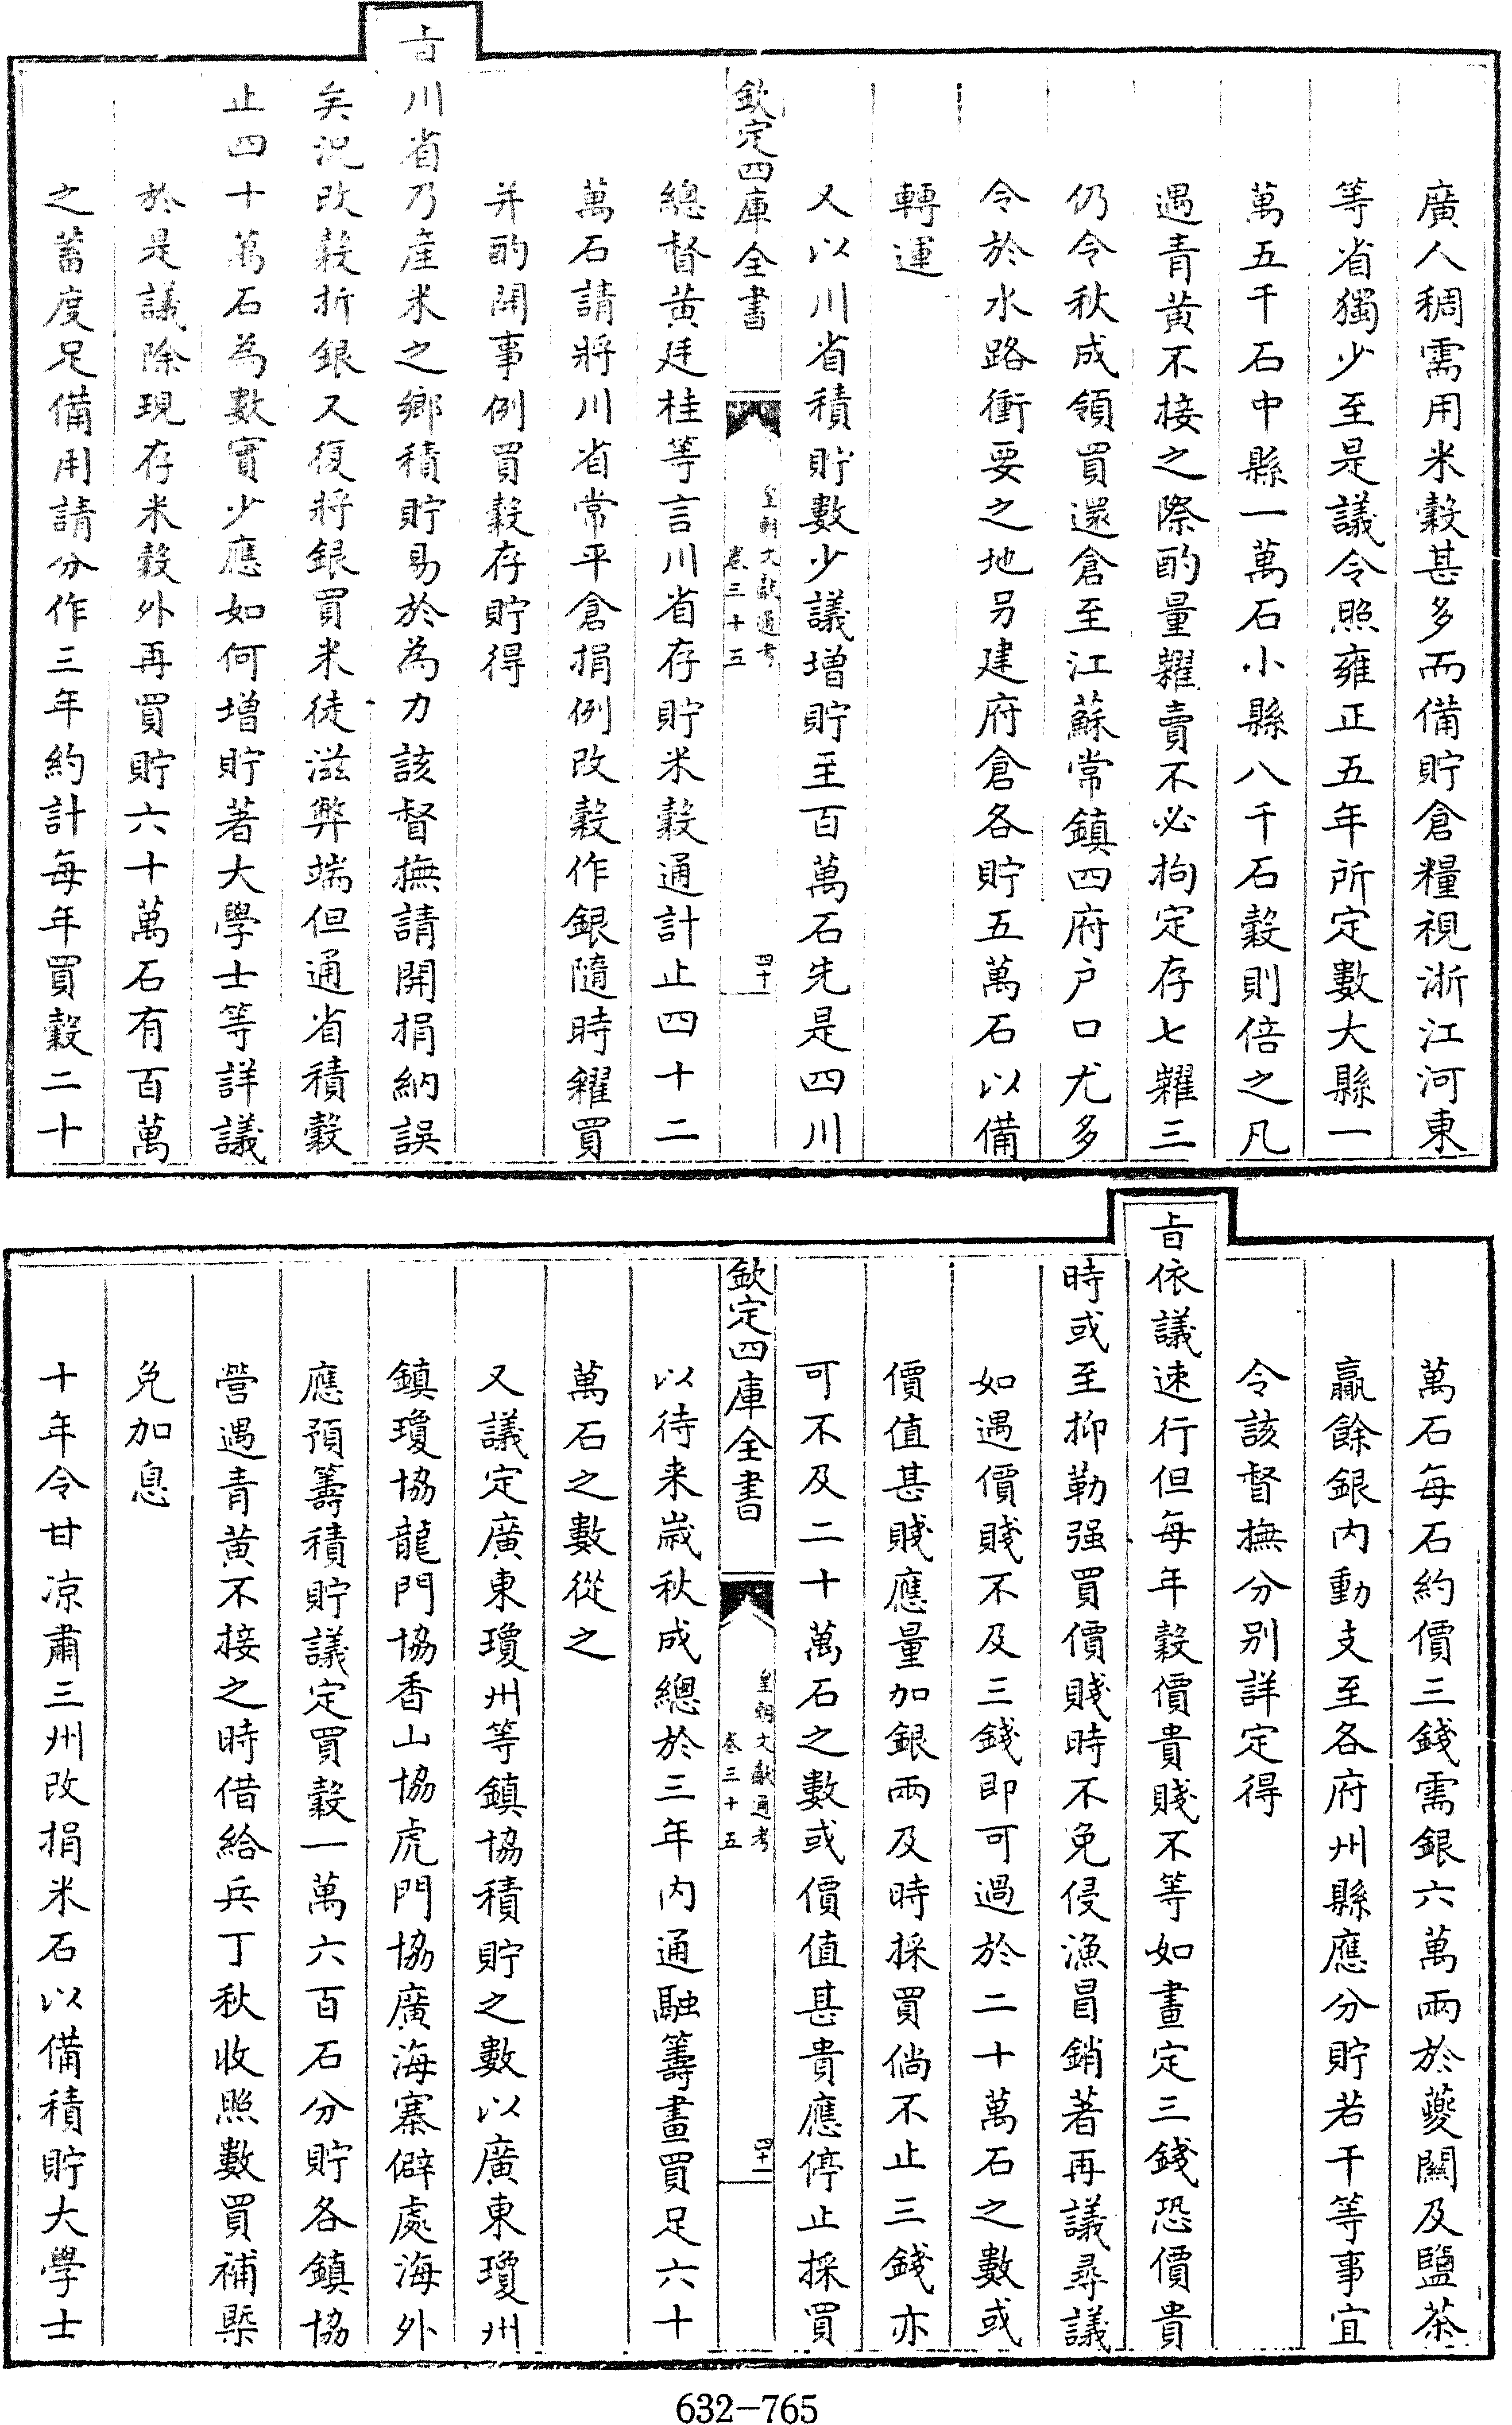 廣人稠需用米穀甚多而備貯倉糧視浙江河東
等省獨少至是議令照雍正五年所定數大縣一
萬五千石中縣一萬石小縣八千石穀則倍之凡
遇青黃不接之際酌量糶賣不必拘定存七糶三
仍令秋成領買還倉至江蘇常鎮四府户口尤多
令於水路衝要之地另建府倉各貯五萬石以備
轉運
又以川省積貯數少議增貯至百萬石先是四川
欽定四庫全書
皇朝文獻通考
卷三十五
四十
總督黃廷桂等言川省存貯米穀通計止四十二
萬石請將川省常平倉捐例改穀作銀隨時糴買
并酌開事例買穀存貯得
旨川省乃産米之鄉積貯易於為力該督撫請開捐納誤
矣況改穀折銀又復將銀買米徒滋弊端但通省積穀
止四十萬石為數實少應如何增貯著大學士等詳議
於是議除現存米穀外再買貯六十萬石有百萬
之蓄度足備用請分作三年約計每年買穀二十
萬石每石約價三錢需銀六萬兩於夔關及鹽茶
贏餘銀內動支至各府州縣應分貯若干等事宜
令該督撫分别詳定得
旨依議速行但每年穀價貴賤不等如畫定三錢恐價貴
時或至抑勒强買價賤時不免侵漁冒銷著再議尋議
如遇價賤不及三錢即可過於二十萬石之數或
價值甚賤應量加銀兩及時採買倘不止三錢亦
可不及二十萬石之數或價值甚貴應停止採買
欽定四庫全書
皇朝文獻通考
卷三十五
四十一
以待来嵗秋成總於三年內通融籌畫買足六十
萬石之數從之
又議定廣東瓊州等鎮協積貯之數以廣東瓊州
鎮瓊協龍門協香山協虎門協廣海寨僻處海外
應預籌積貯議定買穀一萬六百石分貯各鎮協
營遇青黃不接之時借給兵丁秋收照數買補槩
免加息
十年令甘凉肅三州改捐米石以備積貯大學士
632-765